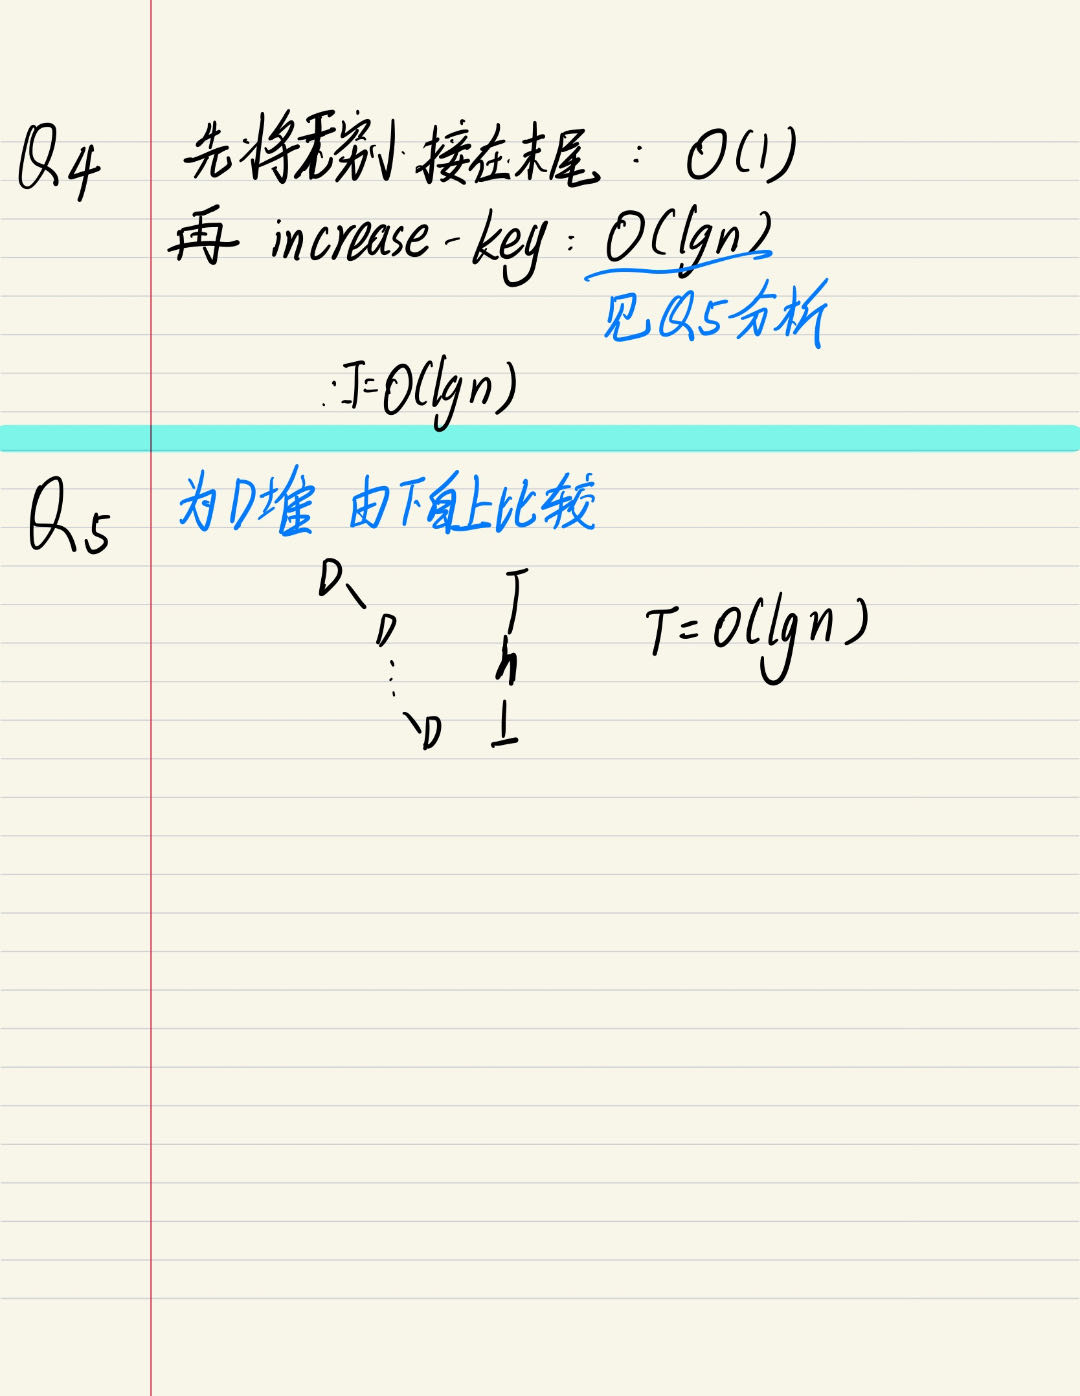 Q4 先将无穷小接在末尾 : O(1)
再 increase-key : O(lgn)
见Q5分析
∴T=O(lgn)
Q5 为D堆 由下自上比较
D
D
h
T=O(lgn)
D